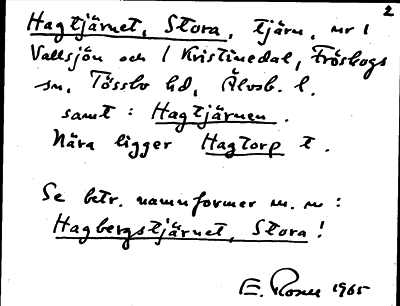 2
Hagtjärnet, Stora, tjärn, nr 1
Vallsjön och 1 Kristinedal, Fröskogs
sn, Tössbo hd, Älvsb. l.
samt : Hagtjärnen.
Nära ligger Hagtorp t.
Se betr. namnformer m. m :
Hagbergstjärnet, Stora !
E. Rosell 1965